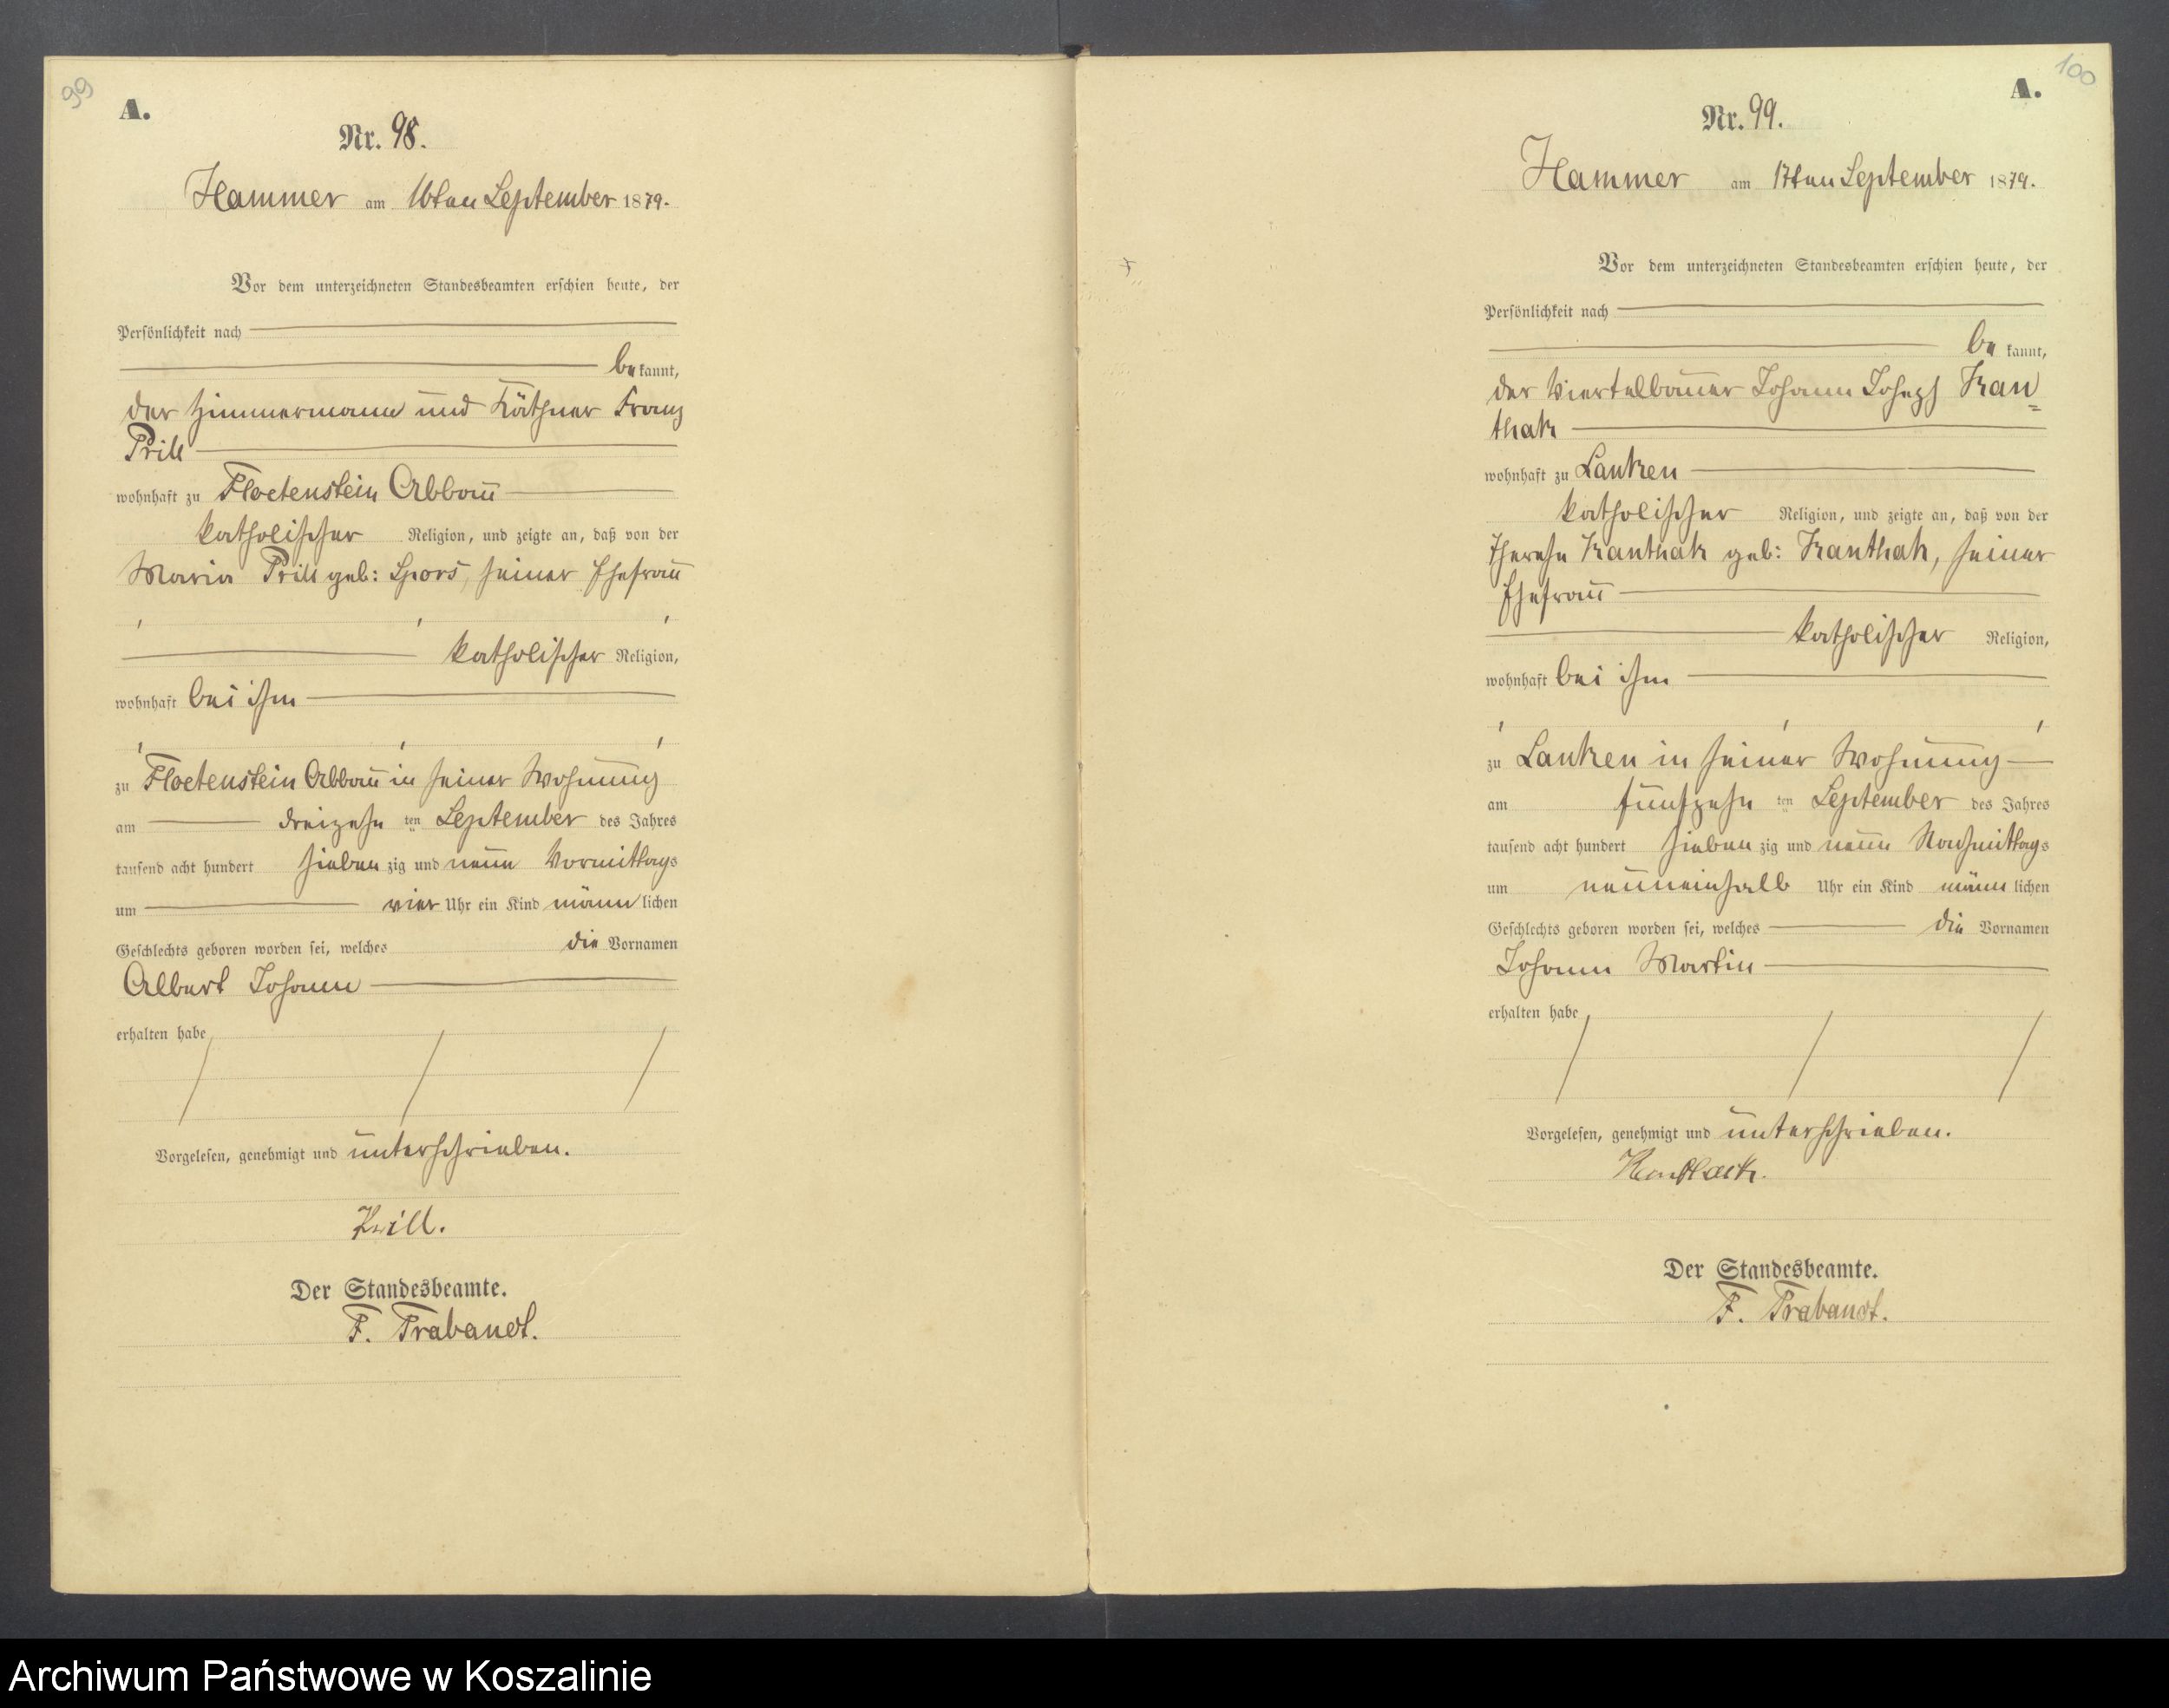 99
A.
Nr. 98.
Hammer am 16ten September 1879.
Vor dem unterzeichneten Standesbeamten erschien heute, der
Persönlichkeit nach
bekannt,
der Zimmermann und Käthner Franz
Prill
wohnhaft zu Floetenstein Abbau
katholischer Religion, und zeigte an, daß von der
Maria Prill geb: Spors, seiner Ehefrau
katholischer Religion,
wohnhaft bei ihm
zu Floetenstein Abbau in seiner Wohnung
am dreizehn ten September des Jahres
tausend acht hundert sieben zig und neun Vormittags
um vier Uhr ein Kind männlichen
Geschlechts geboren worden sei, welches die Vornamen
Albert Johann
erhalten habe
Vorgelesen, genehmigt und unterschrieben.
Prill.
Der Standesbeamte.
F. Trabandt.
100
A.
Nr. 99.
Hammer am 17ten September 1879.
Vor dem unterzeichneten Standesbeamten erschien heute, der
Persönlichkeit nach
bekannt,
der Viertelbauer Johann Joseph Kan=
thak
wohnhaft zu Lanken
katholischer Religion, und zeigte an, daß von der
Therese Kanthak geb: Kanthak, seiner
Ehefrau
katholischer Religion,
wohnhaft bei ihm
zu Lanken in seiner Wohnung
am fünfzehn ten September des Jahres
tausend acht hundert sieben zig und neun Nachmittags
um neuneinhalb Uhr ein Kind männlichen
Geschlechts geboren worden sei, welches die Vornamen
Johann Martin
erhalten habe
Vorgelesen, genehmigt und unterschrieben.
Kanthack.
Der Standesbeamte.
F. Trabandt.
Archiwum Państwowe w Koszalinie